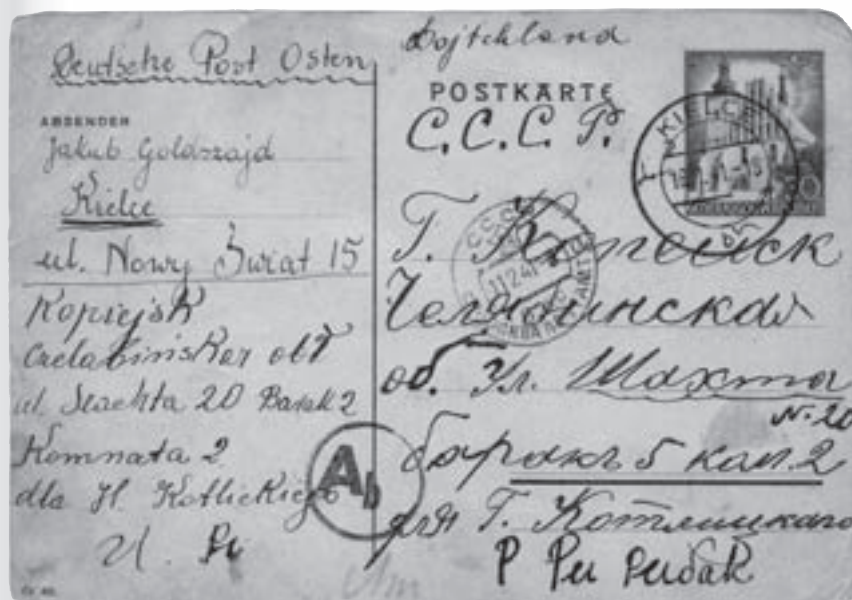 Deutsche Post Osten
ABSENDER
Jakub Goldszajd
Kielce
ul. Nowy Świat 15
Kopiejsk
Czelabinsker obł
ul. Szachta 20 Barak 2
Komnata 2
dla H. Kotlickiego
Dojtchland
POSTKARTE
С.С.С.Р.
KIELCE
Г. Копейск
Челябинская
об. Ул. Шахта
N. 20
баракъ 5 кам. 2
для Г. Котлицкаго
Ab